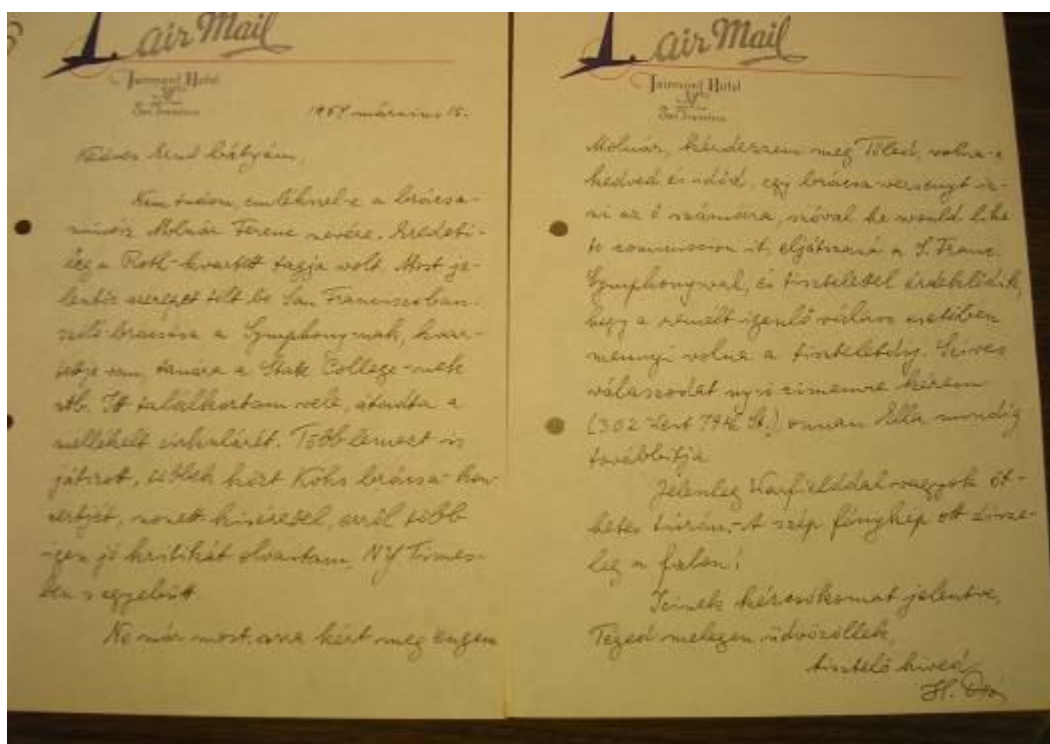 Air Mail
Fairmont Hotel
San Francisco
1954 március 15.
Kedves Ernő bátyám,
Nem tudom, emlékszel-e a brácsa-
művész Molnár Ferenc nevére. Eredeti-
leg a Roth-kvartett tagja volt. Most je-
lentős szerepet tölt be San Franciscoban:
szóló-brácsása a Symphonynak, kvar-
tettje van, tanára a State College-nek
stb. Itt találkoztam vele, átadta a
mellékelt cirkulárét. Több lemezt is
játszott, többek közt Kohs brácsa-kon-
certjét, nonett-kísérettel, erről több
igen jó kritikát olvastam, NY Times-
ben s egyebütt.
No már most arra kért meg engem
Air Mail
Fairmont Hotel
San Francisco
Molnár, kérdezzem meg Tőled, volna-e
kedved és időd, egy brácsa-versenyt ír-
ni az ő számára, szóval he would like
to commission it, eljátszaná a S. Franc.
Symphonyval, és tisztelettel érdeklődik,
hogy a remélt igenlő válasz esetében
mennyi volna a tiszteletdíj. Szíves
válaszodat nyi címemre kérem
(302 West 79th St.), onnan Ella mindig
továbbítja.
Jelenleg Warfielddal vagyok öt-
hetes túrán. - A szép fénykép ott dísze-
leg a falon!
Icinek kézcsókomat jelentve,
Téged melegen üdvözöllek,
tisztelő híved